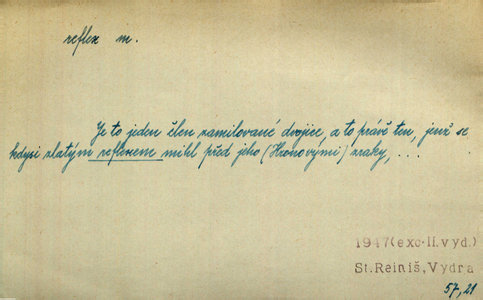 reflex m.
Je to jeden člen zamilované dvojice, a to právě ten, jenž se
kdysi zlatým reflexem mihl před jeho (Hronovými) zraky, ...
1947(exc.II.vyd.)
St.Reiniš,Vydra
57,21